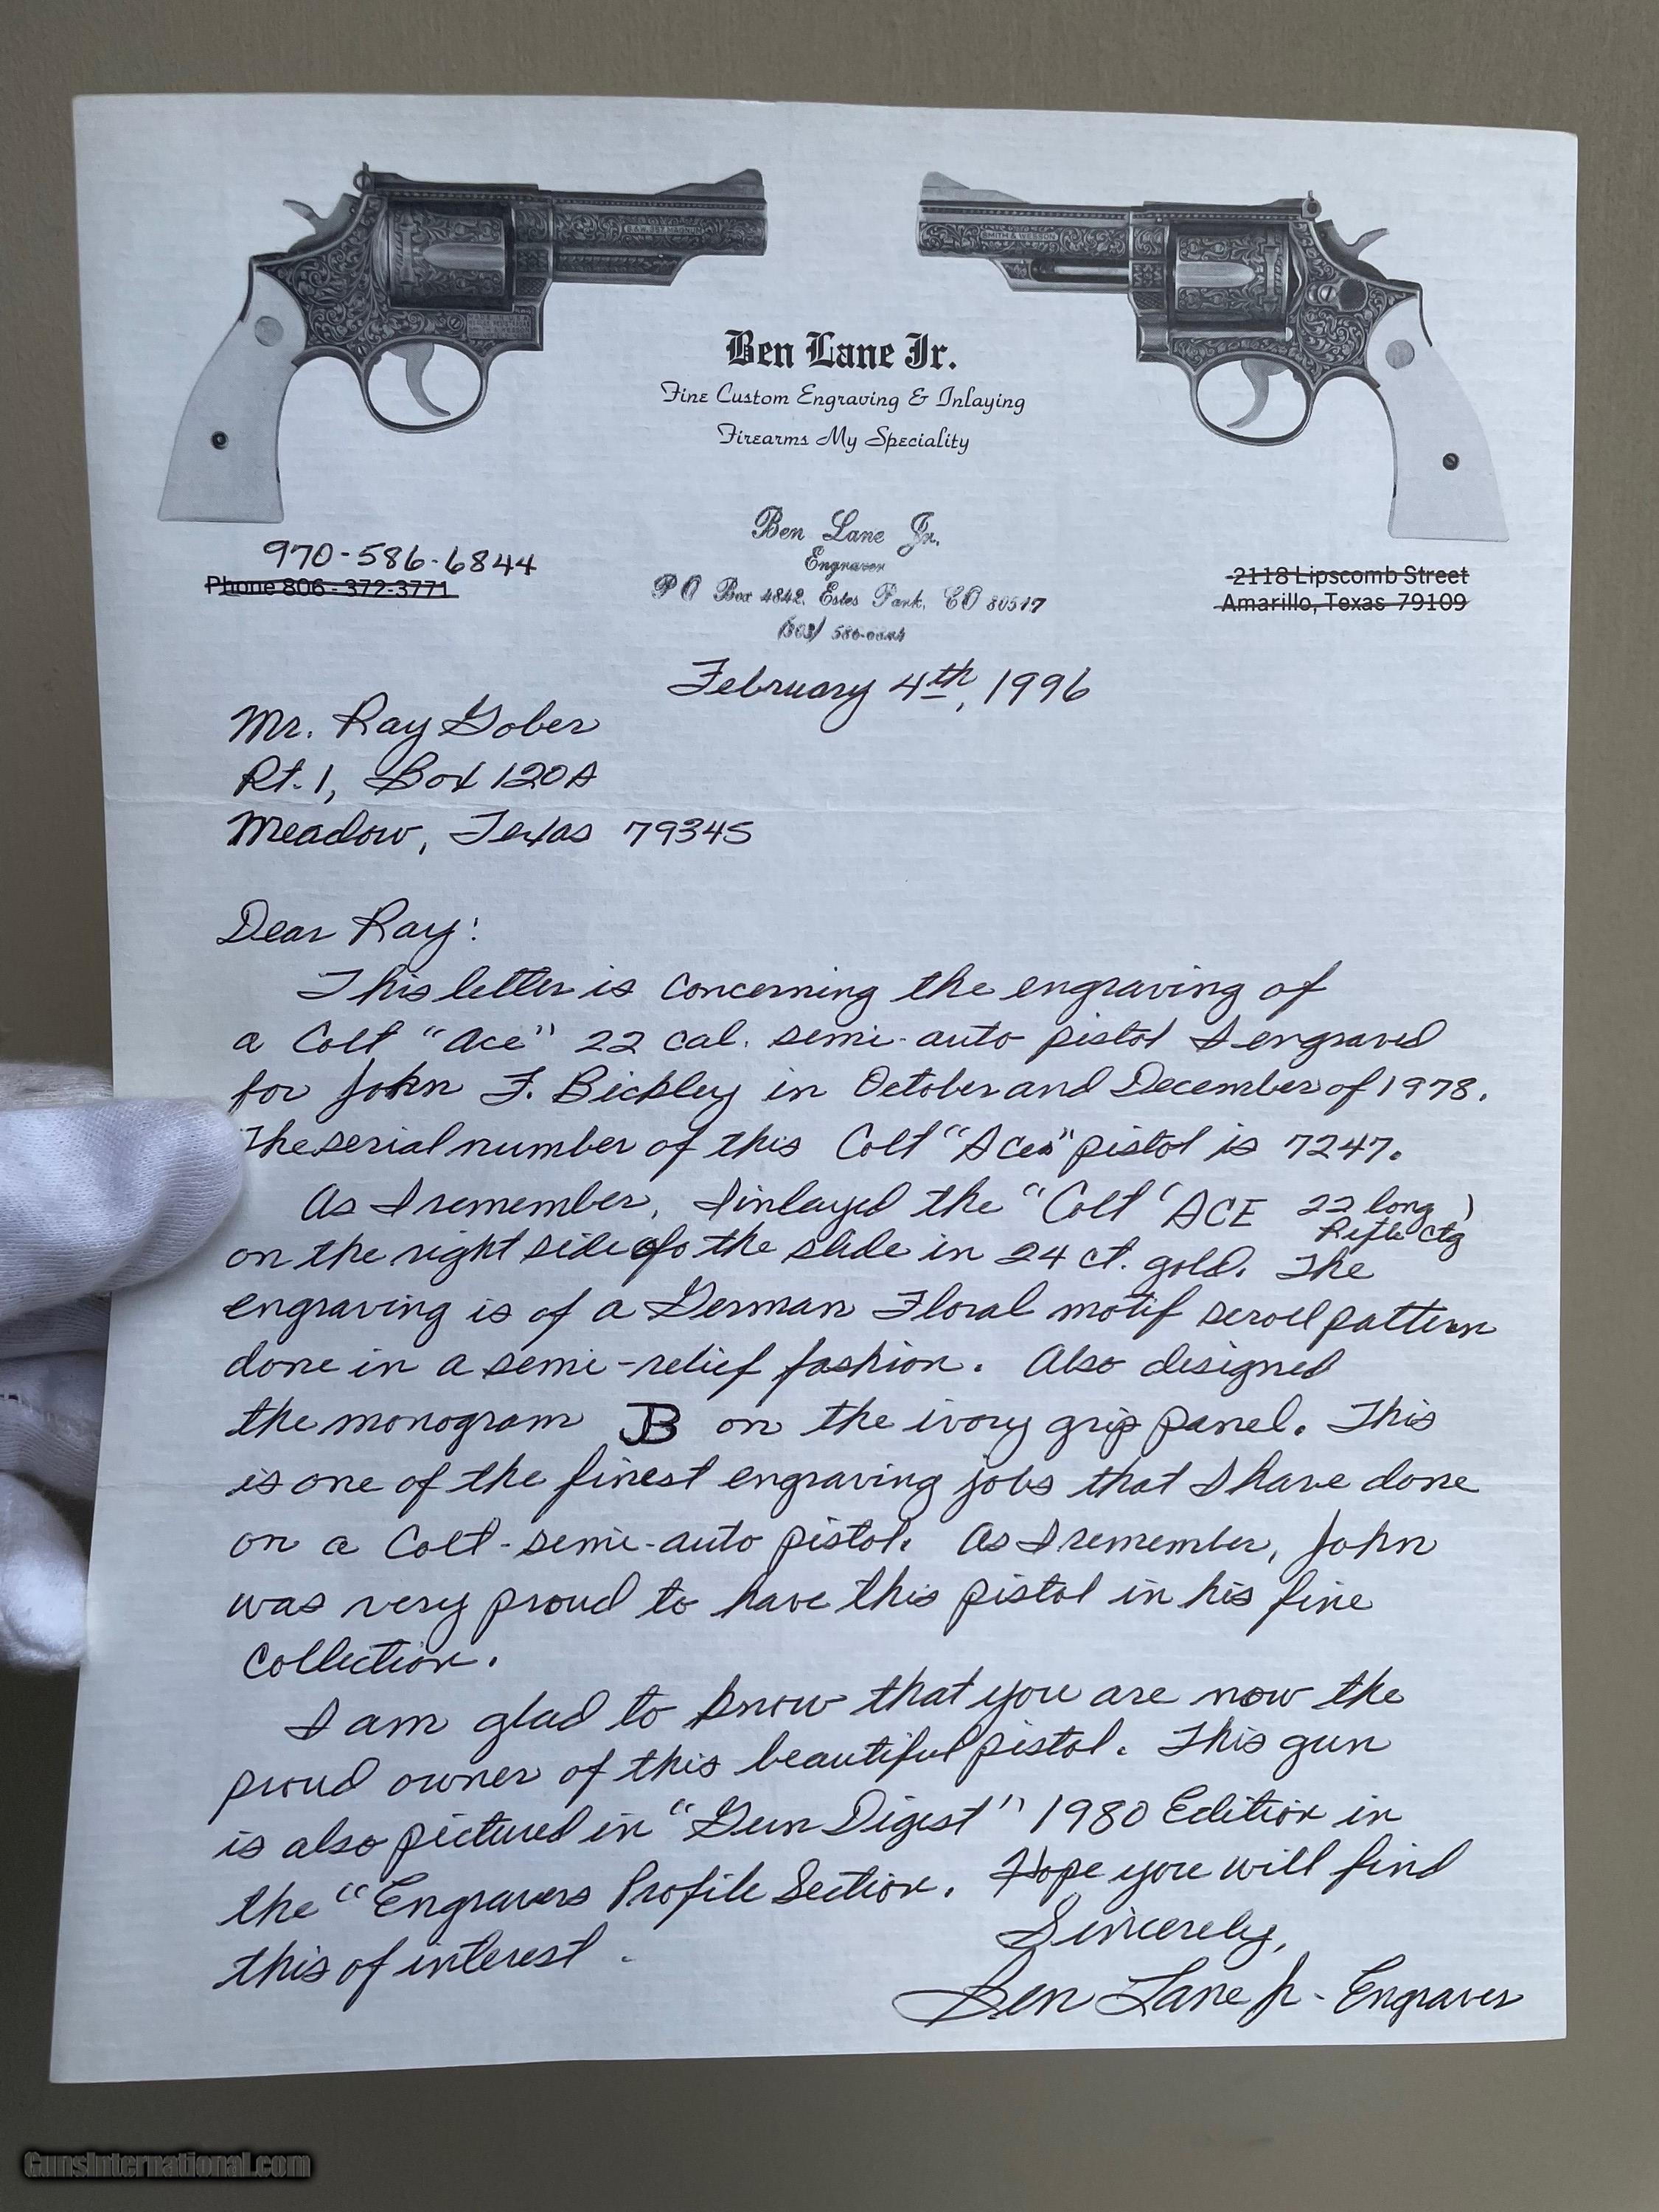 S.&W. 357 MAGNUM
SMITH & WESSON
Ben Lane Jr.
Fine Custom Engraving & Inlaying
Firearms My Speciality
Ben Lane Jr.
Engraver
P O Box 4842, Estes Park, CO 80517
(303) 586-6844
970-586-6844
Phone 806-372-3771
2118 Lipscomb Street
Amarillo, Texas 79109
February 4th, 1996
Mr. Ray Gober
Rt. 1, Box 120A
Meadow, Texas 79345
Dear Ray:
This letter is concerning the engraving of
a Colt "Ace" 22 cal. semi-auto pistol I engraved
for John F. Bickley in October and December of 1978.
The serial number of this Colt "Ace" pistol is 7247.
As I remember, I inlayed the "Colt 'ACE 22 long
Rifle Ctg
on the right side of the slide in 24 ct. gold. The
engraving is of a German Floral motif scroll pattern
done in a semi-relief fashion. Also designed
the monogram JB on the ivory grip panel. This
is one of the finest engraving jobs that I have done
on a Colt-semi-auto pistol. As I remember, John
was very proud to have this pistol in his fine
collection.
I am glad to know that you are now the
proud owner of this beautiful pistol. This gun
is also pictured in "Gun Digest" 1980 Edition in
the "Engravers Profile Section. Hope you will find
this of interest.
Sincerely,
Ben Lane Jr - Engraver
GunsInternational.com